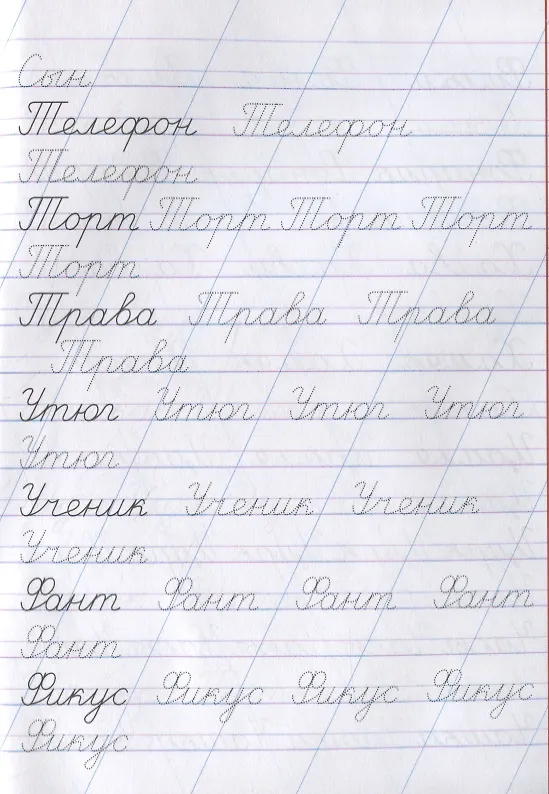 Сын
Телефон Телефон
Телефон
Торт Торт Торт Торт
Торт
Трава Трава Трава
Трава
Утюг Утюг Утюг Утюг
Утюг
Ученик Ученик Ученик
Ученик
Фант Фант Фант Фант
Фант
Фикус Фикус Фикус Фикус
Фикус